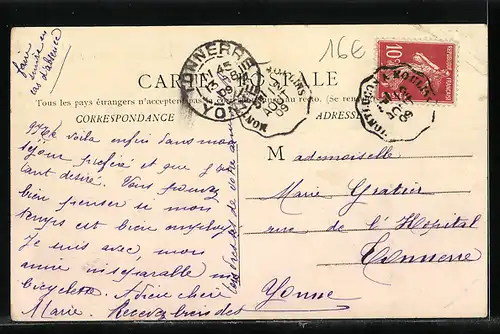 faire
suivre en
cas d'absence
16E
CARTE POSTALE
Tous les pays étrangers n'acceptent pas
au recto. (Se
CORRESPONDANCE
ADRESSE
TONNERRE
YONNE
15
09
RÉPUBLIQUE FRANÇAISE
10
Me voilà enfin dans mon
séjour préféré et que j'
tant désiré. Vous pouvez
bien penser si mon
temps est bien employé
Je suis avec mon
amie inséparable
bicyclette. Adieu chère
Marie. Recevez
de votre
Mademoiselle
Marie Gratier
rue de l'Hopital
Tonnerre
Yonne